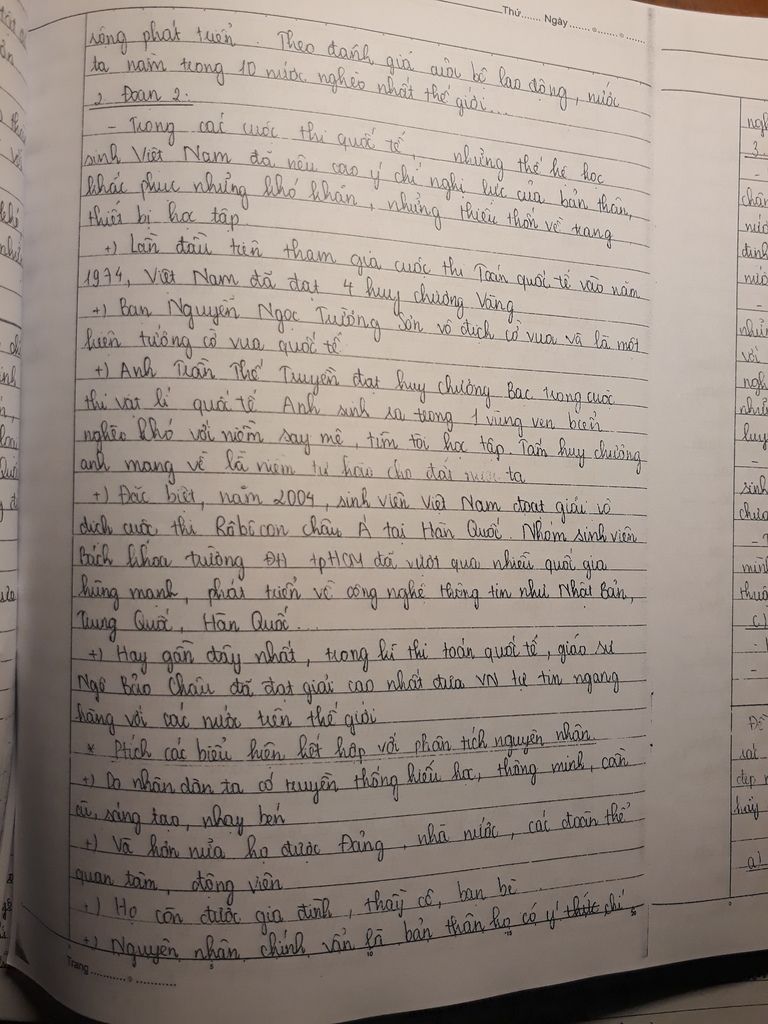 Thứ....... Ngày.......
sống phát triển. Theo đánh giá của bộ lao động, nước
ta nằm trong 10 nước nghèo nhất thế giới...
2 Đoạn 2:
- Trong các cuộc thi quốc tế, những thế hệ học
sinh Việt Nam đã nêu cao ý chí nghị lực của bản thân,
khắc phục những khó khăn, những thiếu thốn về trang
thiết bị học tập.
+) Lần đầu tiên tham gia cuộc thi Toán quốc tế vào năm
1974, Việt Nam đã đạt 4 huy chương Vàng
+) Bạn Nguyễn Ngọc Trường Sơn vô địch cờ vua và là một
hiện tượng cờ vua quốc tế.
+) Anh Trần Thế Truyền đạt huy chương Bạc trong cuộc
thi vật lí quốc tế Anh sinh ra trong 1 vùng ven biển
nghèo khó với niềm say mê, tìm tòi học tập. Tấm huy chương
anh mang về là niềm tự hào cho đất nước ta
+) Đặc biệt, năm 2004, sinh viên Việt Nam đoạt giải vô
địch cuộc thi Rôbicon châu Á tại Hàn Quốc. Nhóm sinh viên
Bách khoa trường ĐH tpHCM đã vượt qua nhiều quốc gia
hùng mạnh, phát triển về công nghệ thông tin như Nhật Bản,
Trung Quốc, Hàn Quốc...
+) Hay gần đây nhất, trong kì thi toán quốc tế, giáo sư
Ngô Bảo Châu đã đạt giải cao nhất đưa VN tự tin ngang
hàng với các nước trên thế giới
* Ptích các biểu hiện kết hợp với phân tích nguyên nhân
+) Do nhân dân ta có truyền thống hiếu học, thông minh, cần
cù, sáng tạo, nhạy bén
+) Và hơn nữa họ được Đảng, nhà nước, các đoàn thể
quan tâm, động viên
+) Họ còn được gia đình, thầy cô, bạn bè
+) Nguyên nhân chính vẫn là bản thân họ có ý thức chí
Trang.......